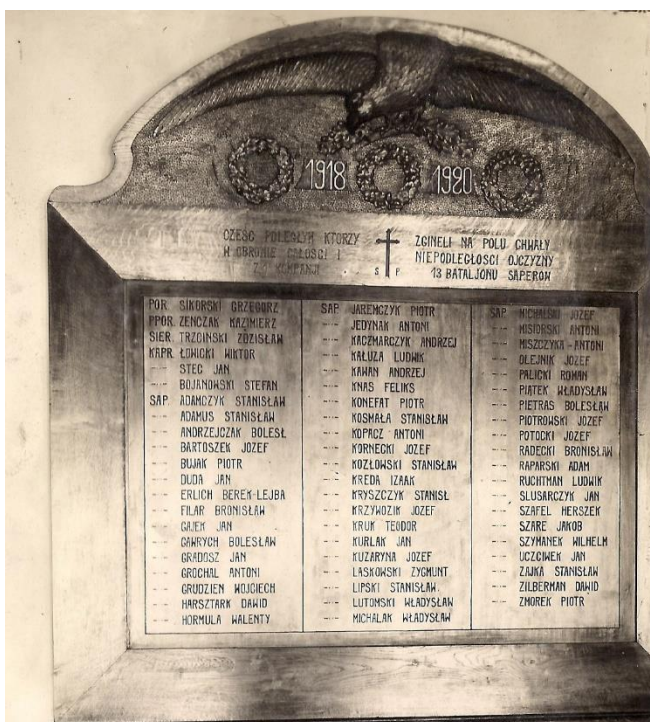 1918 1920
CZEŚĆ POLEGŁYM KTÓRZY
W OBRONIE CAŁOŚCI I
Z 4 KOMPANJI
S P
ZGINELI NA POLU CHWAŁY
NIEPODLEGŁOSCI OJCZYZNY
13 BATALJONU SAPERÓW
POR. SIKORSKI GRZEGORZ
PPOR. ZENCZAK KAZIMIERZ
SIER. TRZCIŃSKI ZDZISŁAW
KAPR. ŁOWICKI WIKTOR
--- STEC JAN
--- BOJANOWSKI STEFAN
SAP. ADAMCZYK STANISŁAW
--- ADAMUS STANISŁAW
--- ANDRZEJCZAK BOLESŁ
--- BARTOSZEK JÓZEF
--- BUJAK PIOTR
--- DUDA JAN
--- ERLICH BEREK-LEJBA
--- FILAR BRONISŁAW
--- GAJEK JAN
--- GAWRYCH BOLESŁAW
--- GRADOSZ JAN
--- GROCHAL ANTONI
--- GRUDZIEN WOJCIECH
--- HARSZTARK DAWID
--- HORMULA WALENTY
SAP. JAREMCZYK PIOTR
--- JEDYNAK ANTONI
--- KACZMARCZYK ANDRZEJ
--- KAŁUZA LUDWIK
--- KAWAN ANDRZEJ
--- KNAS FELIKS
--- KONEFAT PIOTR
--- KOSMALA STANISŁAW
--- KOPACZ ANTONI
--- KORNECKI JOZEF
--- KOZŁOWSKI STANISŁAW
--- KREDA IZAAK
--- KRYSZCZYK STANISŁ
--- KRZYWOZIK JOZEF
--- KRUK TEODOR
--- KURLAK JAN
--- KUZARYNA JOZEF
--- LASKOWSKI ZYGMUNT
--- LIPSKI STANISŁAW.
--- LUTOMSKI WŁADYSŁAW
--- MICHALAK WŁADYSŁAW
SAP. MICHALSKI JOZEF
--- MISIORSKI ANTONI
--- MISZCZYKA-ANTONI
--- OLEJNIK JOZEF
--- PALICKI ROMAN
--- PIĄTEK WŁADYSŁAW
--- PIETRAS BOLESŁAW
--- PIOTROWSKI JOZEF
--- POTOCKI JOZEF
--- RADECKI BRONISŁAW
--- RAPARSKI ADAM
--- RUCHTMAN LUDWIK
--- SLUSARCZYK JAN
--- SZAFEL HERSZEK
--- SZARE JAKOB
--- SZYMANEK WILHELM
--- UCZCIWEK JAN
--- ZAJKA STANISŁAW
--- ZILBERMAN DAWID
--- ZMOREK PIOTR